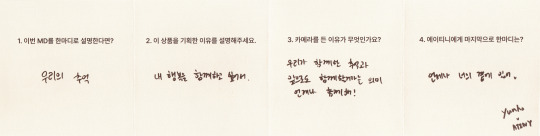 1. 이번 MD를 한마디로 설명한다면?
우리의 추억
2. 이 상품을 기획한 이유를 설명해주세요.
내 행복을 함께하고 싶어서.
3. 카메라를 든 이유가 무엇인가요?
우리가 함께한 추억과
앞으로도 함께한다는 의미
언제나 함께해!
4. 에이티니에게 마지막으로 한마디는?
언제나 너의 곁에 있어.
yunho
ATINY